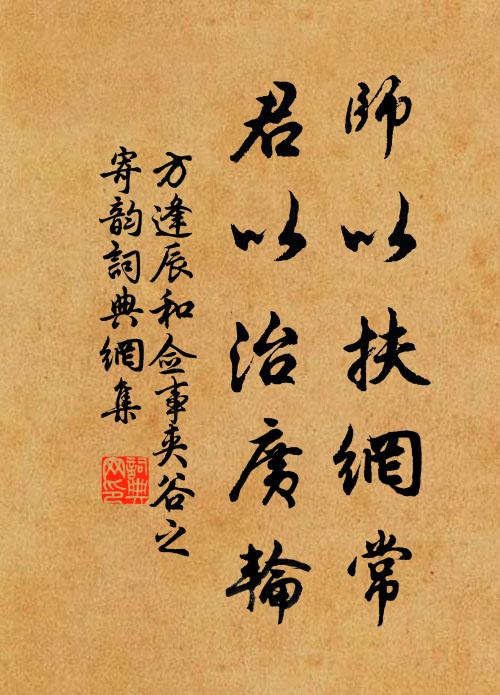 師以扶網常
君以治廣輪
方逢辰和僉事夾谷之
寄韵詞典網集
詞典網印